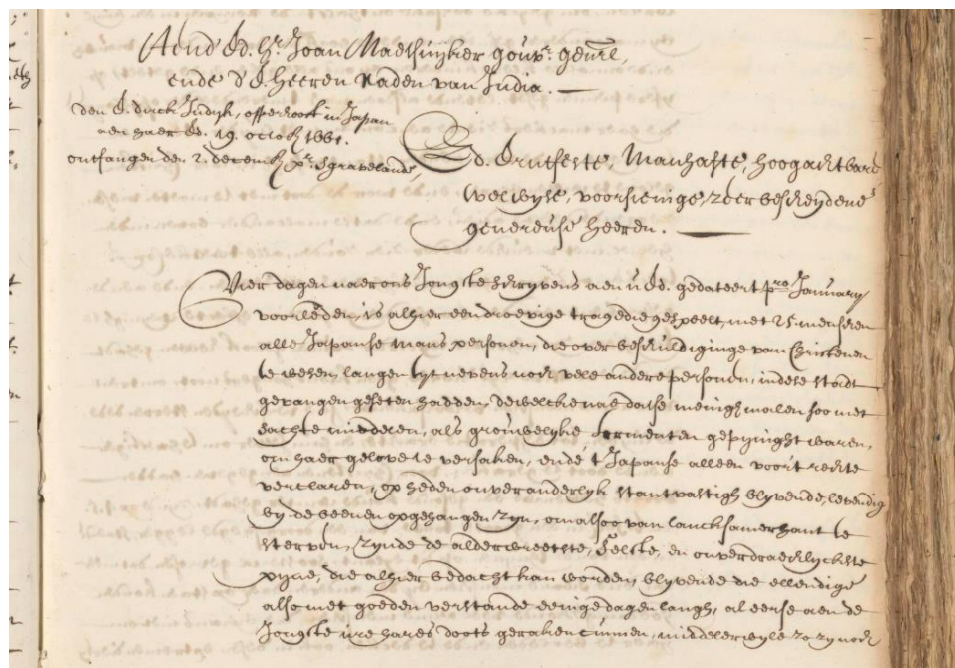 Aend Ed. Hr. Joan Maetsuijker gouvr. genrl,
ende d'E. Heeren Raden van India. —
den E. dirck Indyk, opperhooft in Japan
aen haer Ed. 19. octob 1661.
ontfangen den 2. decemb pr. 's gravelande
Ed. Erntfeste, Manhafte, Hoogachtbare
welwyse, voorsienige, zeer bescheydene
genereuse Heeren. —
Vier dagen naer ons Jongste schryvens aen u Ed. gedateert pmo January
voorleden, is alhier een droevige tragedie gespeelt, met 25. menschen
alle Japanse mans persoonen, die over beschuldiginge van Christenen
te wesen, langen tyt nevens noch vele andere personen, in dese stadt
gevangen geseten hadden, dewelcke nae datse menighmalen soo met
sachte middelen, als grouwelyke tormenten gepynight waren,
om haer gelove te versaken, ende 't Japanse alleen voor 't rechte
verclaren, op heden onveranderlyk stantvastigh blyvende, levendig
by de beenen opgehangen zyn, om alsoo van lancksamerhant te
sterven, zynde de alderwreetste, felste, en onverdraechlyckste
pyne, die alhier bedacht kan worden, blyvende die ellendige
also met goeden verstande eenige dagen langh, al eer se aen de
Jongste ure hares doots geraken cunnen, middelerwyle zo zy noch